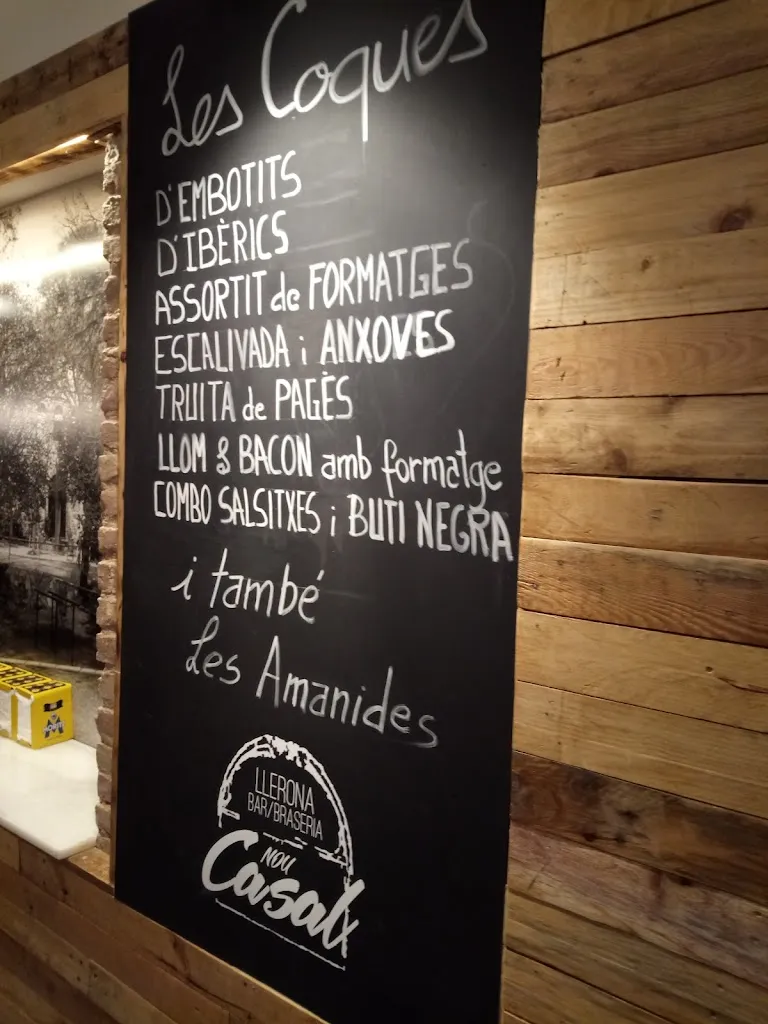 Les Coques
D'EMBOTITS
D'IBÈRICS
ASSORTIT de FORMATGES
ESCALIVADA i ANXOVES
TRUITA de PAGÈS
LLOM & BACON amb formatge
COMBO SALSITXES i BUTI NEGRA
i també
Les Amanides
LLERONA
BAR/BRASERIA
NOU
Casal